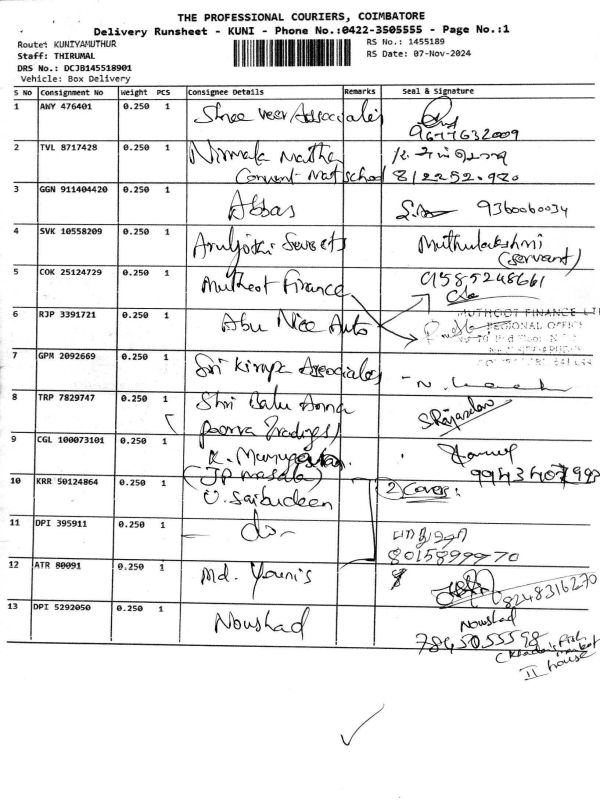 THE PROFESSIONAL COURIERS, COIMBATORE
Delivery Runsheet - KUNI - Phone No.:0422-3505555 - Page No.:1
Route: KUNIYAMUTHUR
RS No.: 1455189
Staff: THIRUMAL
RS Date: 07-Nov-2024
DRS No.: DCJB145518901
Vehicle: Box Delivery
S NO Consignment No Weight PCS Consignee Details Remarks Seal & Signature
1 ANY 476401 0.250 1 Shree veer Associates
9677632009
2 TVL 8717428 0.250 1 Nirmala Matha
Convent Mat school
3 GGN 911404420 0.250 1 Abbas 9360060034
4 SVK 10558209 0.250 1 Muthulakshmi
(servant)
5 COK 25124729 0.250 1 Muthoot Finance 9585248661
6 RJP 3391721 0.250 1 Abu Nice Auto
MUTHOOT FINANCE
REGIONAL OFFICE
7 GPM 2092669 0.250 1 Sri Kirupa Associates
8 TRP 7829747 0.250 1 Shri Balu Anna
9 CGL 100073101 0.250 1
(JP masala)
10 KRR 50124864 0.250 1 U. Saibudeen 2 Cover:
11 DPI 395911 0.250 1 - do -
8015899970
12 ATR 80091 0.250 1 Md. Younis
8248316270
13 DPI 5292050 0.250 1 Noushad Noushad
7845055598
II house